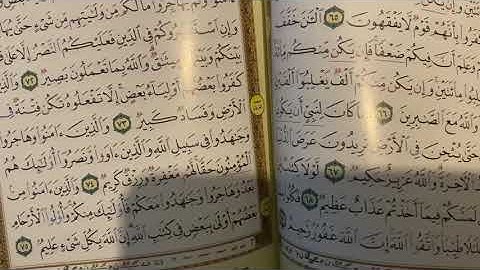 بِأَنَّهُمْ قَوْمٌ لَّا يَفْقَهُونَ ٦٥ ٱلْـَٰٔنَ خَفَّفَ
وَعَلِمَ أَنَّ فِيكُمْ ضَعْفًا فَإِن يَكُن مِّنكُم
يَغْلِبُوا۟ مِا۟ئَتَيْنِ وَإِن يَكُن مِّنكُمْ أَلْفٌ يَغْلِبُوٓا۟ أَلْفَيْنِ
وَٱللَّهُ مَعَ ٱلصَّٰبِرِينَ ٦٦ مَا كَانَ لِنَبِىٍّ أَن يَكُونَ
حَتَّىٰ يُثْخِنَ فِى ٱلْأَرْضِ تُرِيدُونَ عَرَضَ ٱلدُّنْيَا
ٱلْـَٔاخِرَةَ وَٱللَّهُ عَزِيزٌ حَكِيمٌ ٦٧ لَّوْلَا كِتَٰبٌ
لَمَسَّكُمْ فِيمَآ أَخَذْتُمْ عَذَابٌ عَظِيمٌ ٦٨ فَكُلُوا۟
حَلَٰلًا طَيِّبًا وَٱتَّقُوا۟ ٱللَّهَ إِنَّ ٱللَّهَ غَفُورٌ رَّحِيمٌ
وَلَمْ يُهَاجِرُوا۟ مَا لَكُم مِّن وَلَٰيَتِهِم مِّن شَىْءٍ حَتَّىٰ
وَإِنِ ٱسْتَنصَرُوكُمْ فِى ٱلدِّينِ فَعَلَيْكُمُ ٱلنَّصْرُ إِلَّا عَلَىٰ
بَيْنَكُمْ وَبَيْنَهُم مِّيثَٰقٌ وَٱللَّهُ بِمَا تَعْمَلُونَ بَصِيرٌ ٧٢ وَٱلَّذِينَ
كَفَرُوا۟ بَعْضُهُمْ أَوْلِيَآءُ بَعْضٍ إِلَّا تَفْعَلُوهُ تَكُن فِتْنَةٌ فِى
ٱلْأَرْضِ وَفَسَادٌ كَبِيرٌ ٧٣ وَٱلَّذِينَ ءَامَنُوا۟ وَهَاجَرُوا۟
وَجَٰهَدُوا۟ فِى سَبِيلِ ٱللَّهِ وَٱلَّذِينَ ءَاوَوا۟ وَّنَصَرُوٓا۟ أُو۟لَٰٓئِكَ هُمُ
ٱلْمُؤْمِنُونَ حَقًّا لَّهُم مَّغْفِرَةٌ وَرِزْقٌ كَرِيمٌ ٧٤ وَٱلَّذِينَ ءَامَنُوا۟ مِنۢ
بَعْدُ وَهَاجَرُوا۟ وَجَٰهَدُوا۟ مَعَكُمْ فَأُو۟لَٰٓئِكَ مِنكُمْ وَأُو۟لُوا۟ ٱلْأَرْحَامِ
بَعْضُهُمْ أَوْلَىٰ بِبَعْضٍ فِى كِتَٰبِ ٱللَّهِ إِنَّ ٱللَّهَ بِكُلِّ شَىْءٍ عَلِيمٌۢ ٧٥